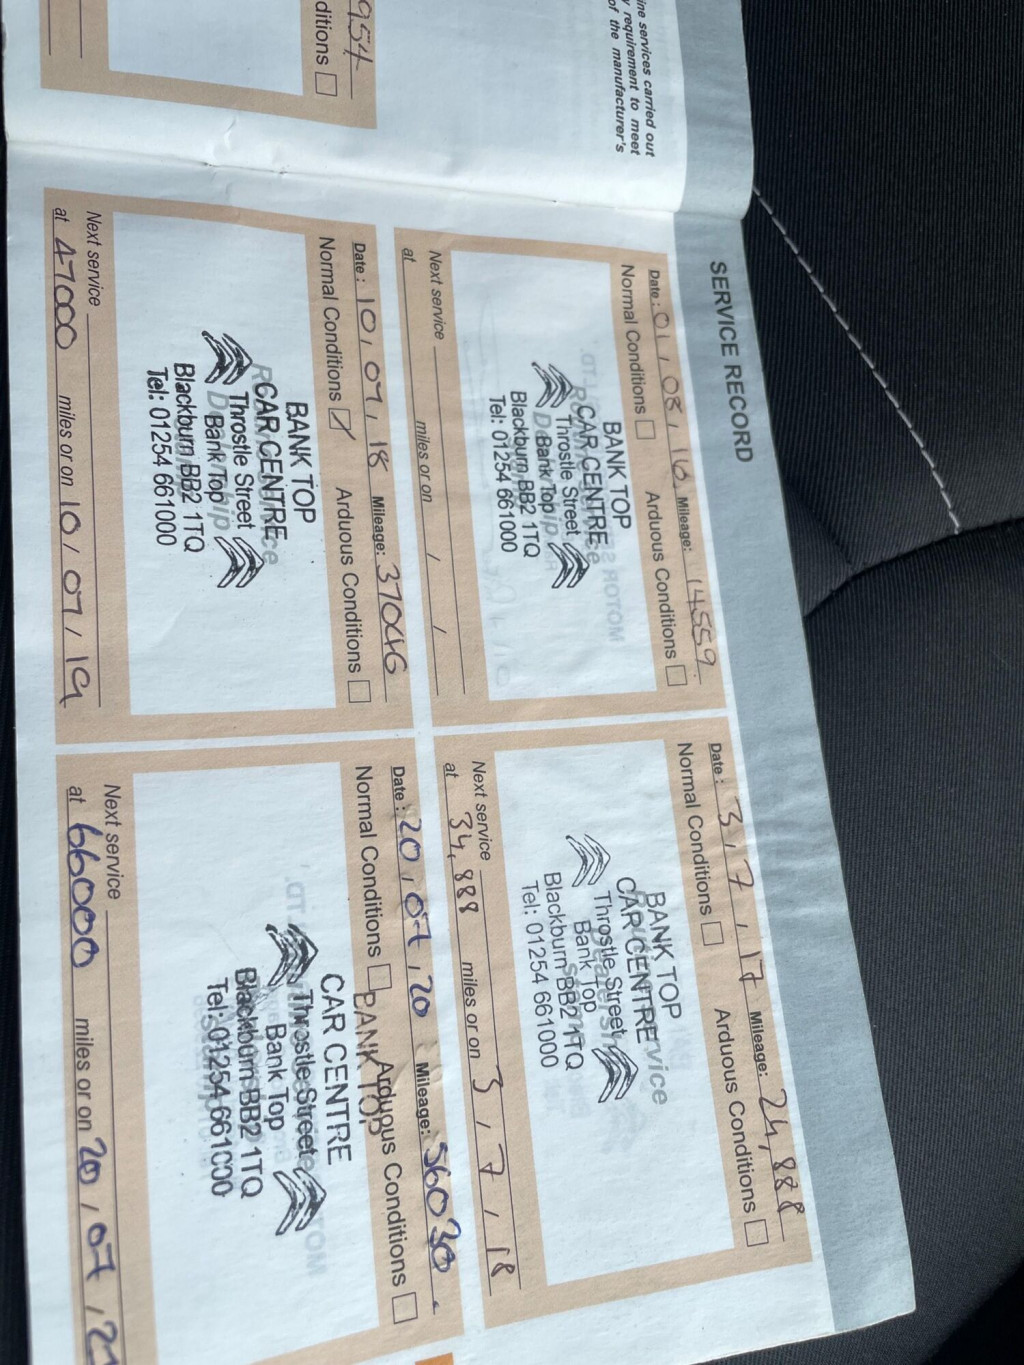 ine services carried out
requirement to meet
of the manufacturer's
954
ditions
SERVICE RECORD
Date : 01 / 08 / 16 Mileage: 14559
Normal Conditions Arduous Conditions
BANK TOP
CAR CENTRE
Throstle Street
Bank Top
Blackburn BB2 1TQ
Tel: 01254 661000
Next service
at miles or on / /
Date : 3 / 7 / 17 Mileage: 24,888
Normal Conditions Arduous Conditions
BANK TOP
CAR CENTRE
Throstle Street
Bank Top
Blackburn BB2 1TQ
Tel: 01254 661000
Next service
at 34,888 miles or on 3 / 7 / 18
Date : 10 / 07 / 18 Mileage: 37046
Normal Conditions Arduous Conditions
BANK TOP
CAR CENTRE
Throstle Street
Bank Top
Blackburn BB2 1TQ
Tel: 01254 661000
Next service
at 47000 miles or on 10 / 07 / 19
Date : 20 / 07 / 20 Mileage: 56030
Normal Conditions Arduous Conditions
BANK TOP
CAR CENTRE
Throstle Street
Bank Top
Blackburn BB2 1TQ
Tel: 01254 661000
Next service
at 66000 miles or on 20 / 07 / 21